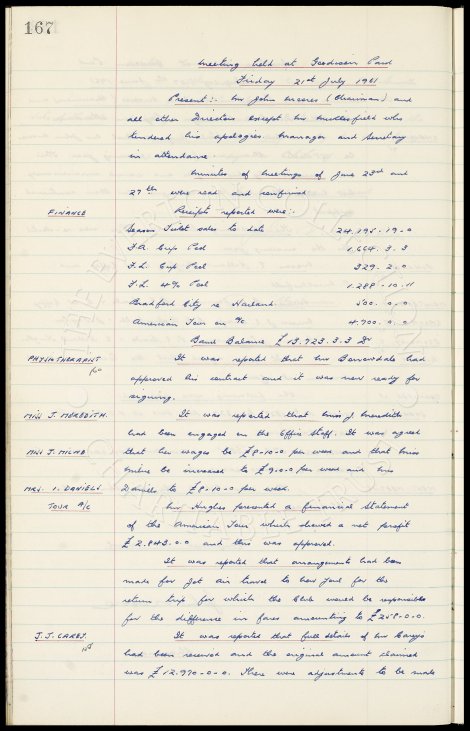 167
Meeting held at Goodison Park
Friday 21st July 1961
Present:- Mr John Moores (Chairman) and
all other Directors except Mr Micklesfield who
tendered his apologies. Manager and Secretary
in attendance.
Minutes of Meetings of June 23rd and
27th were read and confirmed
FINANCE Receipts reported were:-
Season Ticket sales to date 24,195-19-0
F.A. Cup Pool 1,664.3.3
F.L. Cup Pool 329.2.0
F.L. 4% Pool 1.288-10.11
Bradford City re Harland 500.0.0
American Tour on a/c 4.700.0.0
Bank Balance £13.723.3.3 Dr
PHYSIOTHERAPIST It was reported that Mr Borrowdale had
approved his contract and it was now ready for
signing.
MISS J. MEREDITH. It was reported that Miss J. Meredith
had been engaged on the Office Staff. It was agreed
MISS J. MILNE that her wages be £8-10-0 per week and that Miss
Milne be increased to £9.0.0 per week and Mrs
MRS. I. DANIELS Daniels to £8-10-0 per week.
TOUR A/C Mr Hughes presented a financial statement
of the American Tour which showed a net profit
£2.843.0.0 and this was approved.
It was reported that arrangements had been
made for Jet Air travel to New York for the
return trip for which the Club would be responsible
for the difference in fares amounting to £258-0-0.
J.J. CAREY. It was reported that full details of Mr Carey's
had been received and the original amount claimed
was £12.970-0-0. There were adjustments to be made